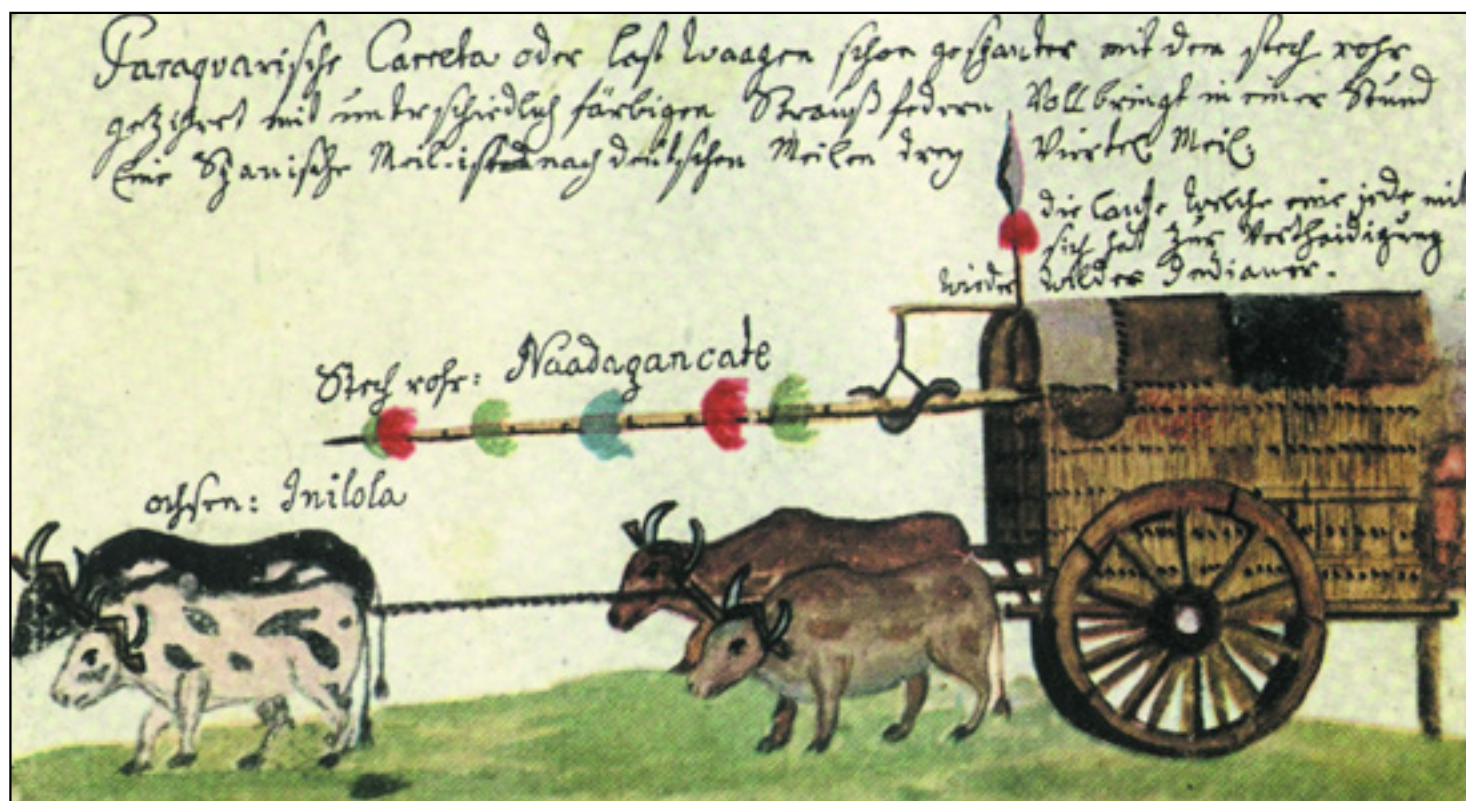 Paraquarische Carreta oder last waagen schon gespanter mit dem stech rohr
gezihret mit unterschiedlich färbigen Straußfedern Vollbringt in einer Stund
Eine Spanische Meil. ist nach deutschen Meilen drey Viertel Meil.
die lanse welche eine jede mit
sich hat zur Vertheidigung
wieder wilder Indianer.
Stech rohr: Naadagancate
ochsen: Inilola